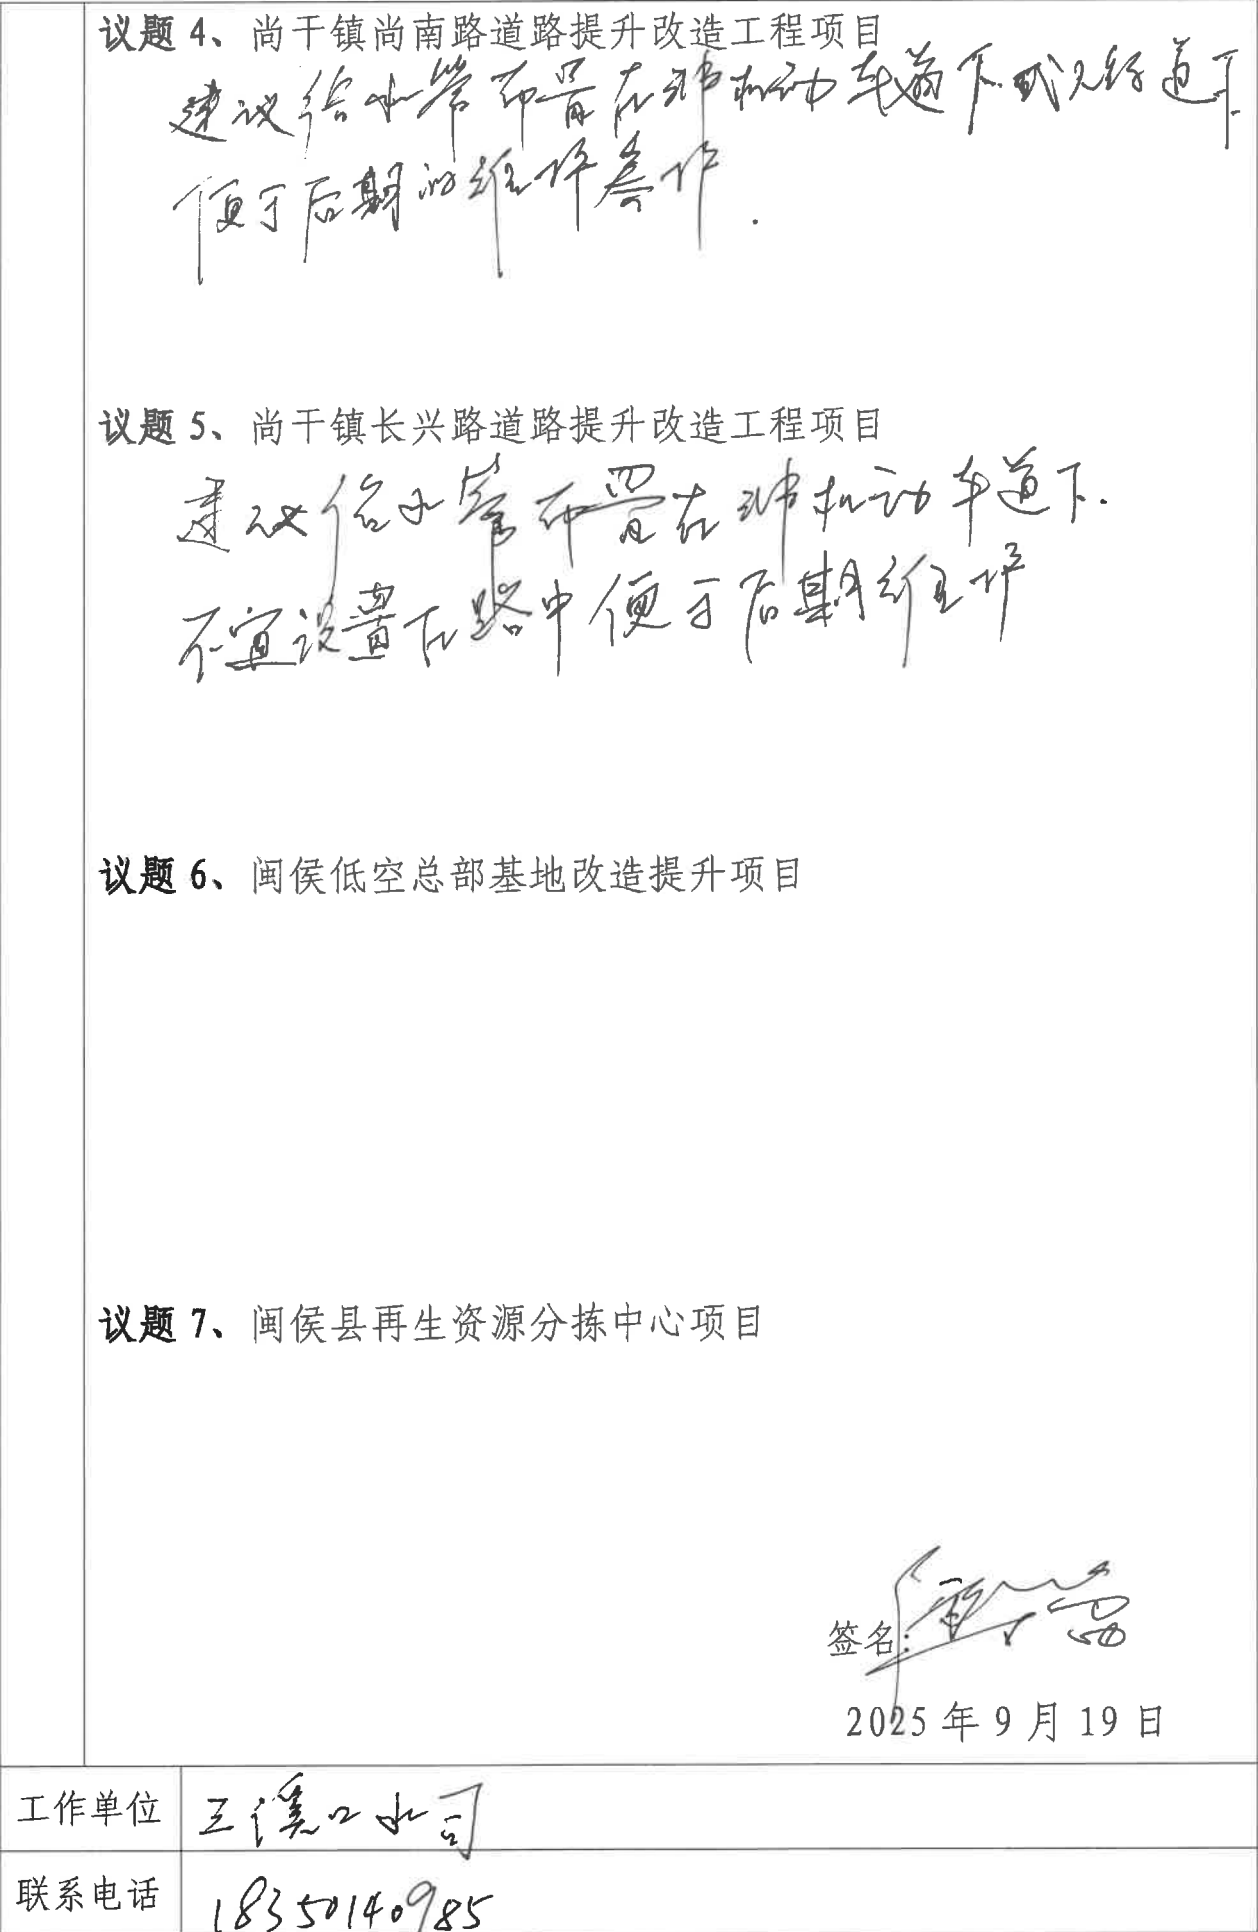 议题 4、尚干镇尚南路道路提升改造工程项目
建议给水管布置在非机动车道下或人行道下
便于后期的维护工作.
议题 5、尚干镇长兴路道路提升改造工程项目
建议给水管布置在非机动车道下.
不宜设置在路中便于后期维护
议题 6、闽侯低空总部基地改造提升项目
议题 7、闽侯县再生资源分拣中心项目
签名:
2025 年 9 月 19 日
工作单位 三溪口水司
联系电话 18350140985